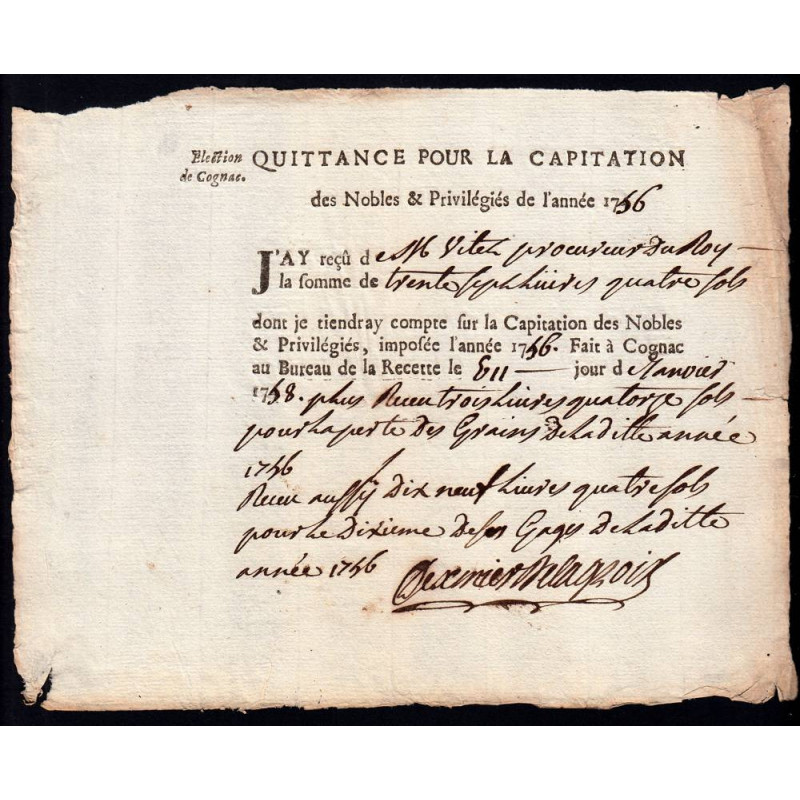 Election QUITTANCE POUR LA CAPITATION
de Cognac.
des Nobles & Privilégiés de l'année 1756
J'AY reçû de M Vitet procureur Du Roy
la somme de trente sept Livres quatre sols
dont je tiendray compte sur la Capitation des Nobles
& Privilégiés, imposée l'année 1756. Fait à Cognac
au Bureau de la Recette le jour de Janvier
1758. plus Receu trois Livres quatorze sols
pour La perte Des Grains De La ditte année
1756
Receu aussÿ Dix neuf Livres quatre sols
pour Le Dixieme De ses Gages De La ditte
année 1756